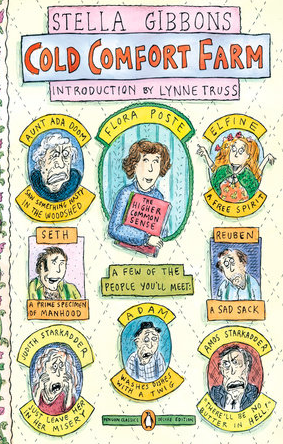 STELLA GIBBONS
COLD COMFORT FARM
INTRODUCTION BY LYNNE TRUSS
AUNT ADA DOOM
SAW SOMETHING NASTY
IN THE WOODSHED
FLORA POSTE
THE
HIGHER
COMMON
SENSE
ELFINE
A FREE SPIRIT
SETH
A PRIME SPECIMEN
OF MANHOOD
A FEW OF THE
PEOPLE YOU'LL MEET:
REUBEN
A SAD SACK
JUDITH STARKADDER
"JUST LEAVE HER
IN HER MISERY"
ADAM
WASHES DISHES
WITH A TWIG
AMOS STARKADDER
"THERE'LL BE NO
BUTTER IN HELL!"
PENGUIN CLASSICS DELUXE EDITION